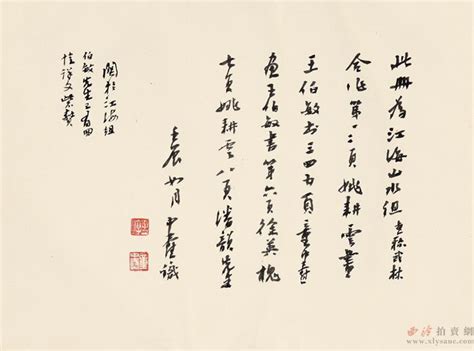 此册为江海山水组重游武林
合作第一二页姚耕云画
王伯敏书三四五页童中焘
画王伯敏书第六页徐英槐
七页姚耕云八页潘韵先生
壬辰如月中焘识
关於江海组
伯敏先生之有四
文柴
西泠拍卖网
www.xlysauc.com